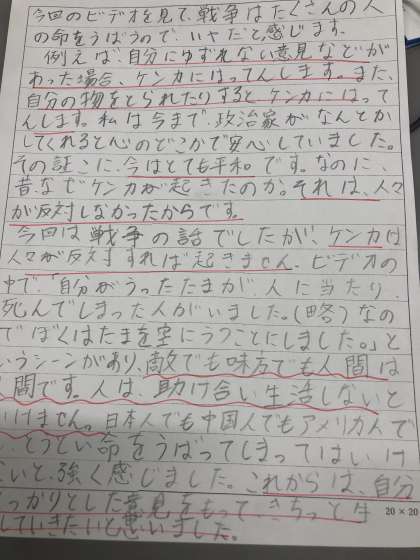 今回のビデオを見て、戦争はたくさんの人
の命をうばうので、いやだと感じます。
例えば、自分にゆずれない意見などが
あった場合、ケンカにはってんします。また、
自分の物をとられたりするとケンカにはって
んします。私は今まで、政治家がなんとか
してくれると心のどこかで安心していました。
その証こに、今はとても平和です。なのに、
昔、なぜケンカが起きたのか。それは、人々
が反対しなかったからです。
今回は戦争の話でしたが、ケンカは
人々が反対すれば起きません。ビデオの
中で「自分がうったたまが、人に当たり、
死んでしまった人がいました。(略)なの
でぼくはたまを空にうつことにしました。」と
いうシーンがあり、敵でも味方でも人間は
人間です。人は、助け合い生活しないと
いけません。日本人でも中国人でもアメリカ人で
、とうとい命をうばってしまってはいけ
ないと、強く感じました。これからは、自分
しっかりとした意見をもって、きちっと生
していきたいと思いました。
20×20